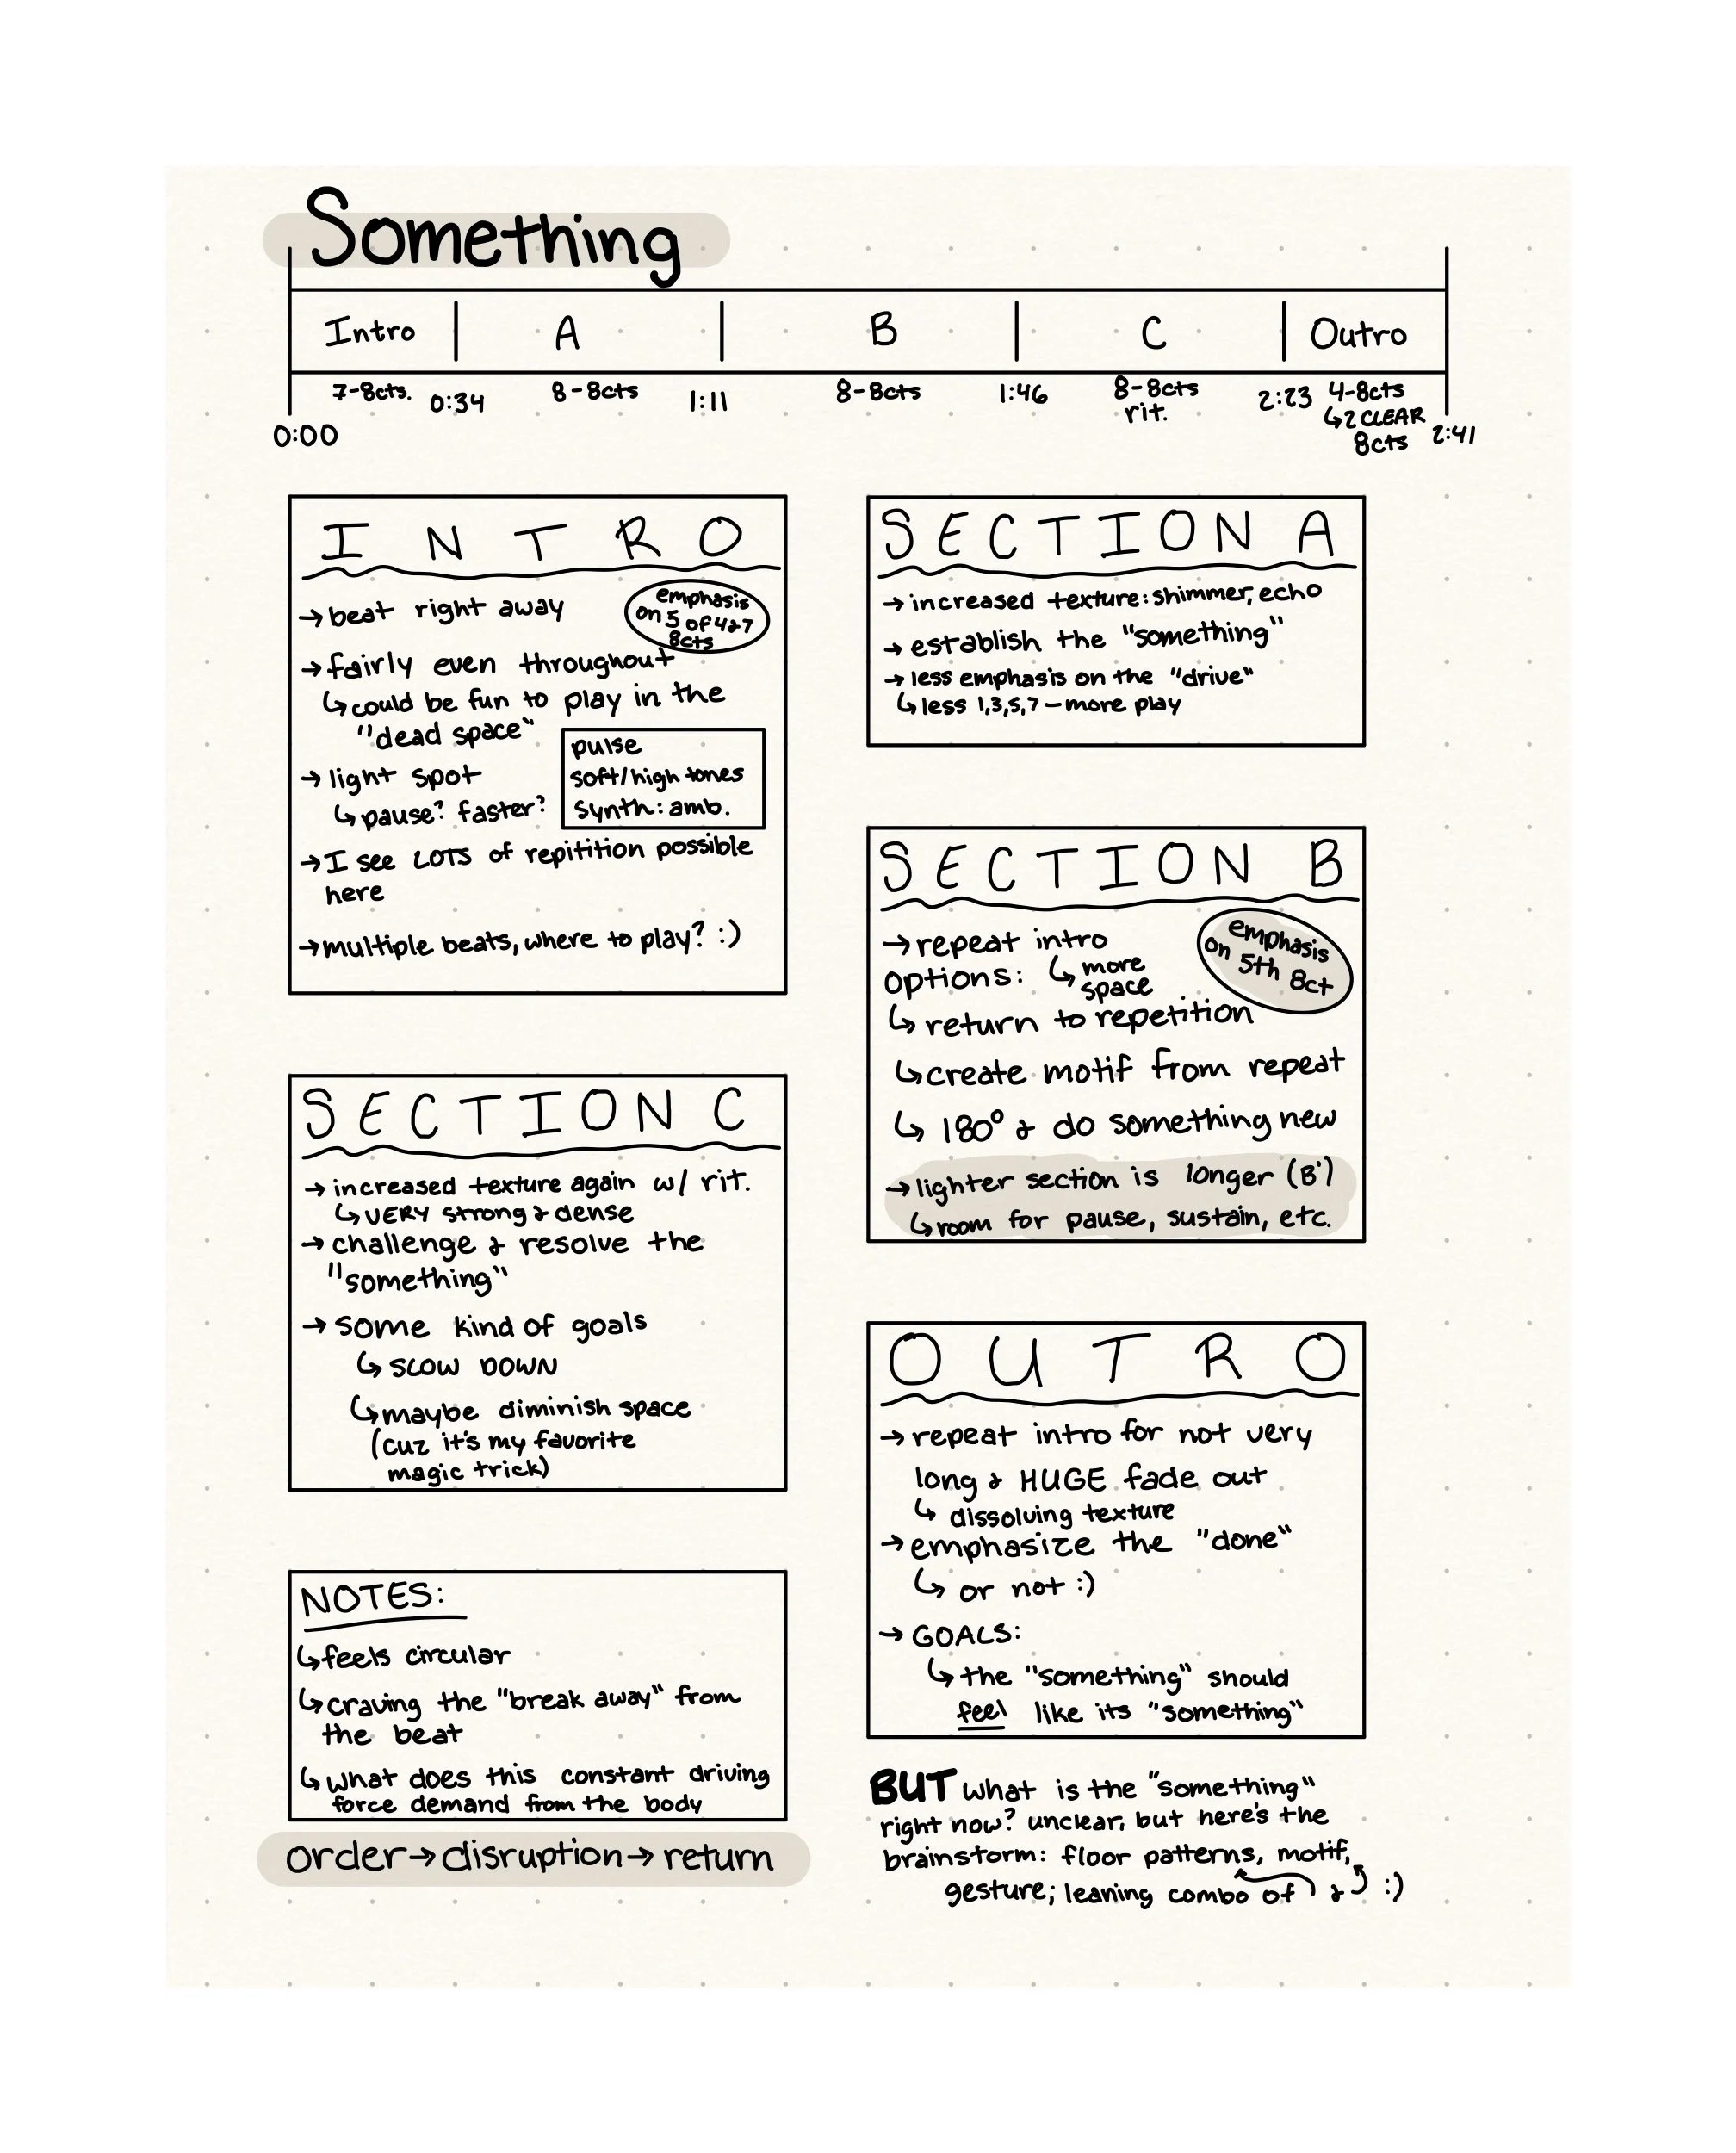 Something
Intro
A
B
C
Outro
7-8cts.
8-8cts
8-8cts
8-8cts
rit.
4-8cts
↳2 CLEAR
8cts
0:00
0:34
1:11
1:46
2:23
2:41
INTRO
→ beat right away
emphasis
on 5 of 4&7
8cts
→ fairly even throughout
↳ could be fun to play in the
"dead space"
→ light spot
↳ pause? faster?
pulse
soft/high tones
synth: amb.
→ I see LOTS of repitition possible
here
→ multiple beats, where to play? :)
SECTION A
→ increased texture: shimmer, echo
→ establish the "something"
→ less emphasis on the "drive"
↳ less 1,3,5,7 — more play
SECTION B
→ repeat intro
↳ more
space
emphasis
on 5th 8ct
options:
↳ return to repetition
↳ create motif from repeat
↳ 180° & do something new
→ lighter section is longer (B')
↳ room for pause, sustain, etc.
SECTION C
→ increased texture again w/ rit.
↳ VERY strong & dense
→ challenge & resolve the
"something"
→ some kind of goals
↳ SLOW DOWN
↳ maybe diminish space
(cuz it's my favorite
magic trick)
OUTRO
→ repeat intro for not very
long & HUGE fade out
↳ dissolving texture
→ emphasize the "done"
↳ or not :)
→ GOALS:
↳ the "something" should
feel like its "something"
NOTES:
↳ feels circular
↳ craving the "break away" from
the beat
↳ what does this constant driving
force demand from the body
order → disruption → return
BUT what is the "something"
right now? unclear, but here's the
brainstorm: floor patterns, motif,
gesture; leaning combo of & :)